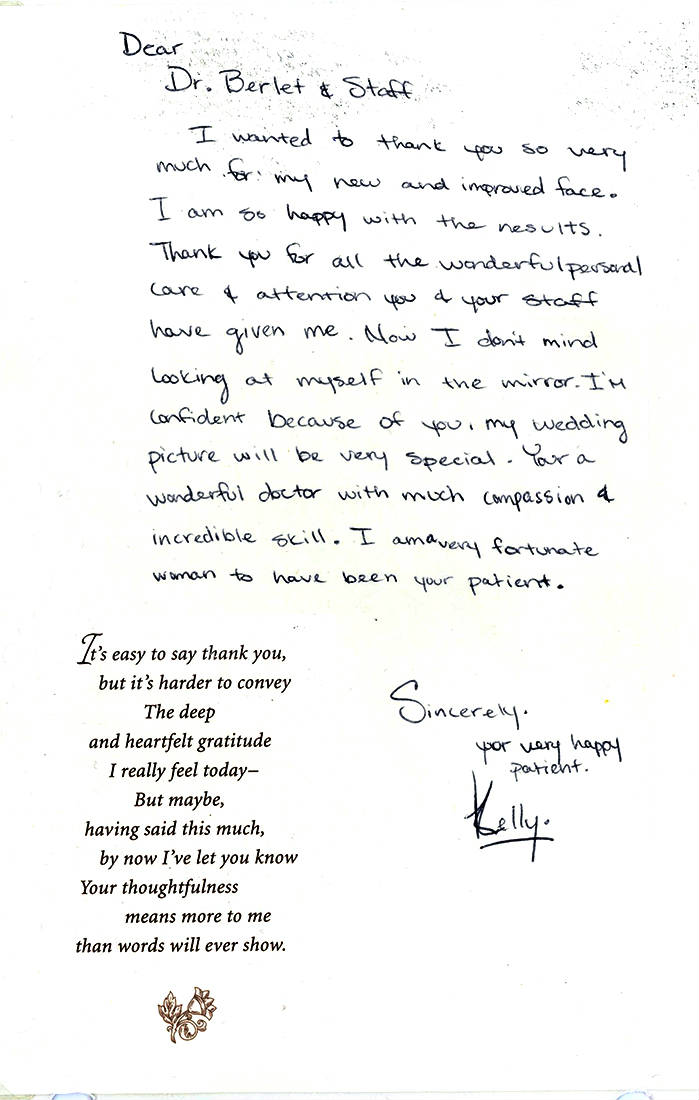 Dear
Dr. Berlet & Staff
I wanted to thank you so very
much for my new and improved face.
I am so happy with the results.
Thank you for all the wonderful personal
care & attention you & your staff
have given me. Now I don't mind
looking at myself in the mirror. I'M
confident because of you, my wedding
picture will be very special. Your a
wonderful doctor with much compassion &
incredible skill. I am a very fortunate
woman to have been your patient.
It's easy to say thank you,
but it's harder to convey
The deep
and heartfelt gratitude
I really feel today–
But maybe,
having said this much,
by now I've let you know
Your thoughtfulness
means more to me
than words will ever show.
Sincerely.
your very happy
patient.
Kelly.